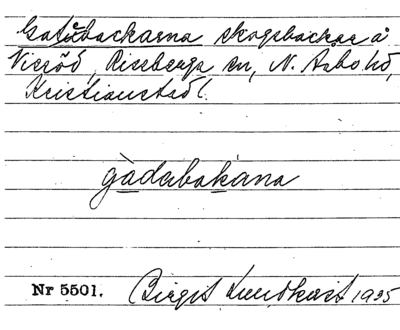 Gatubackarna skogsbackar å
Vieröd, Risseberga sn, N. Åsbo hd,
Kristianstad l.
gàdabakana
Nr 5501. Birgit Lundkvist 1935